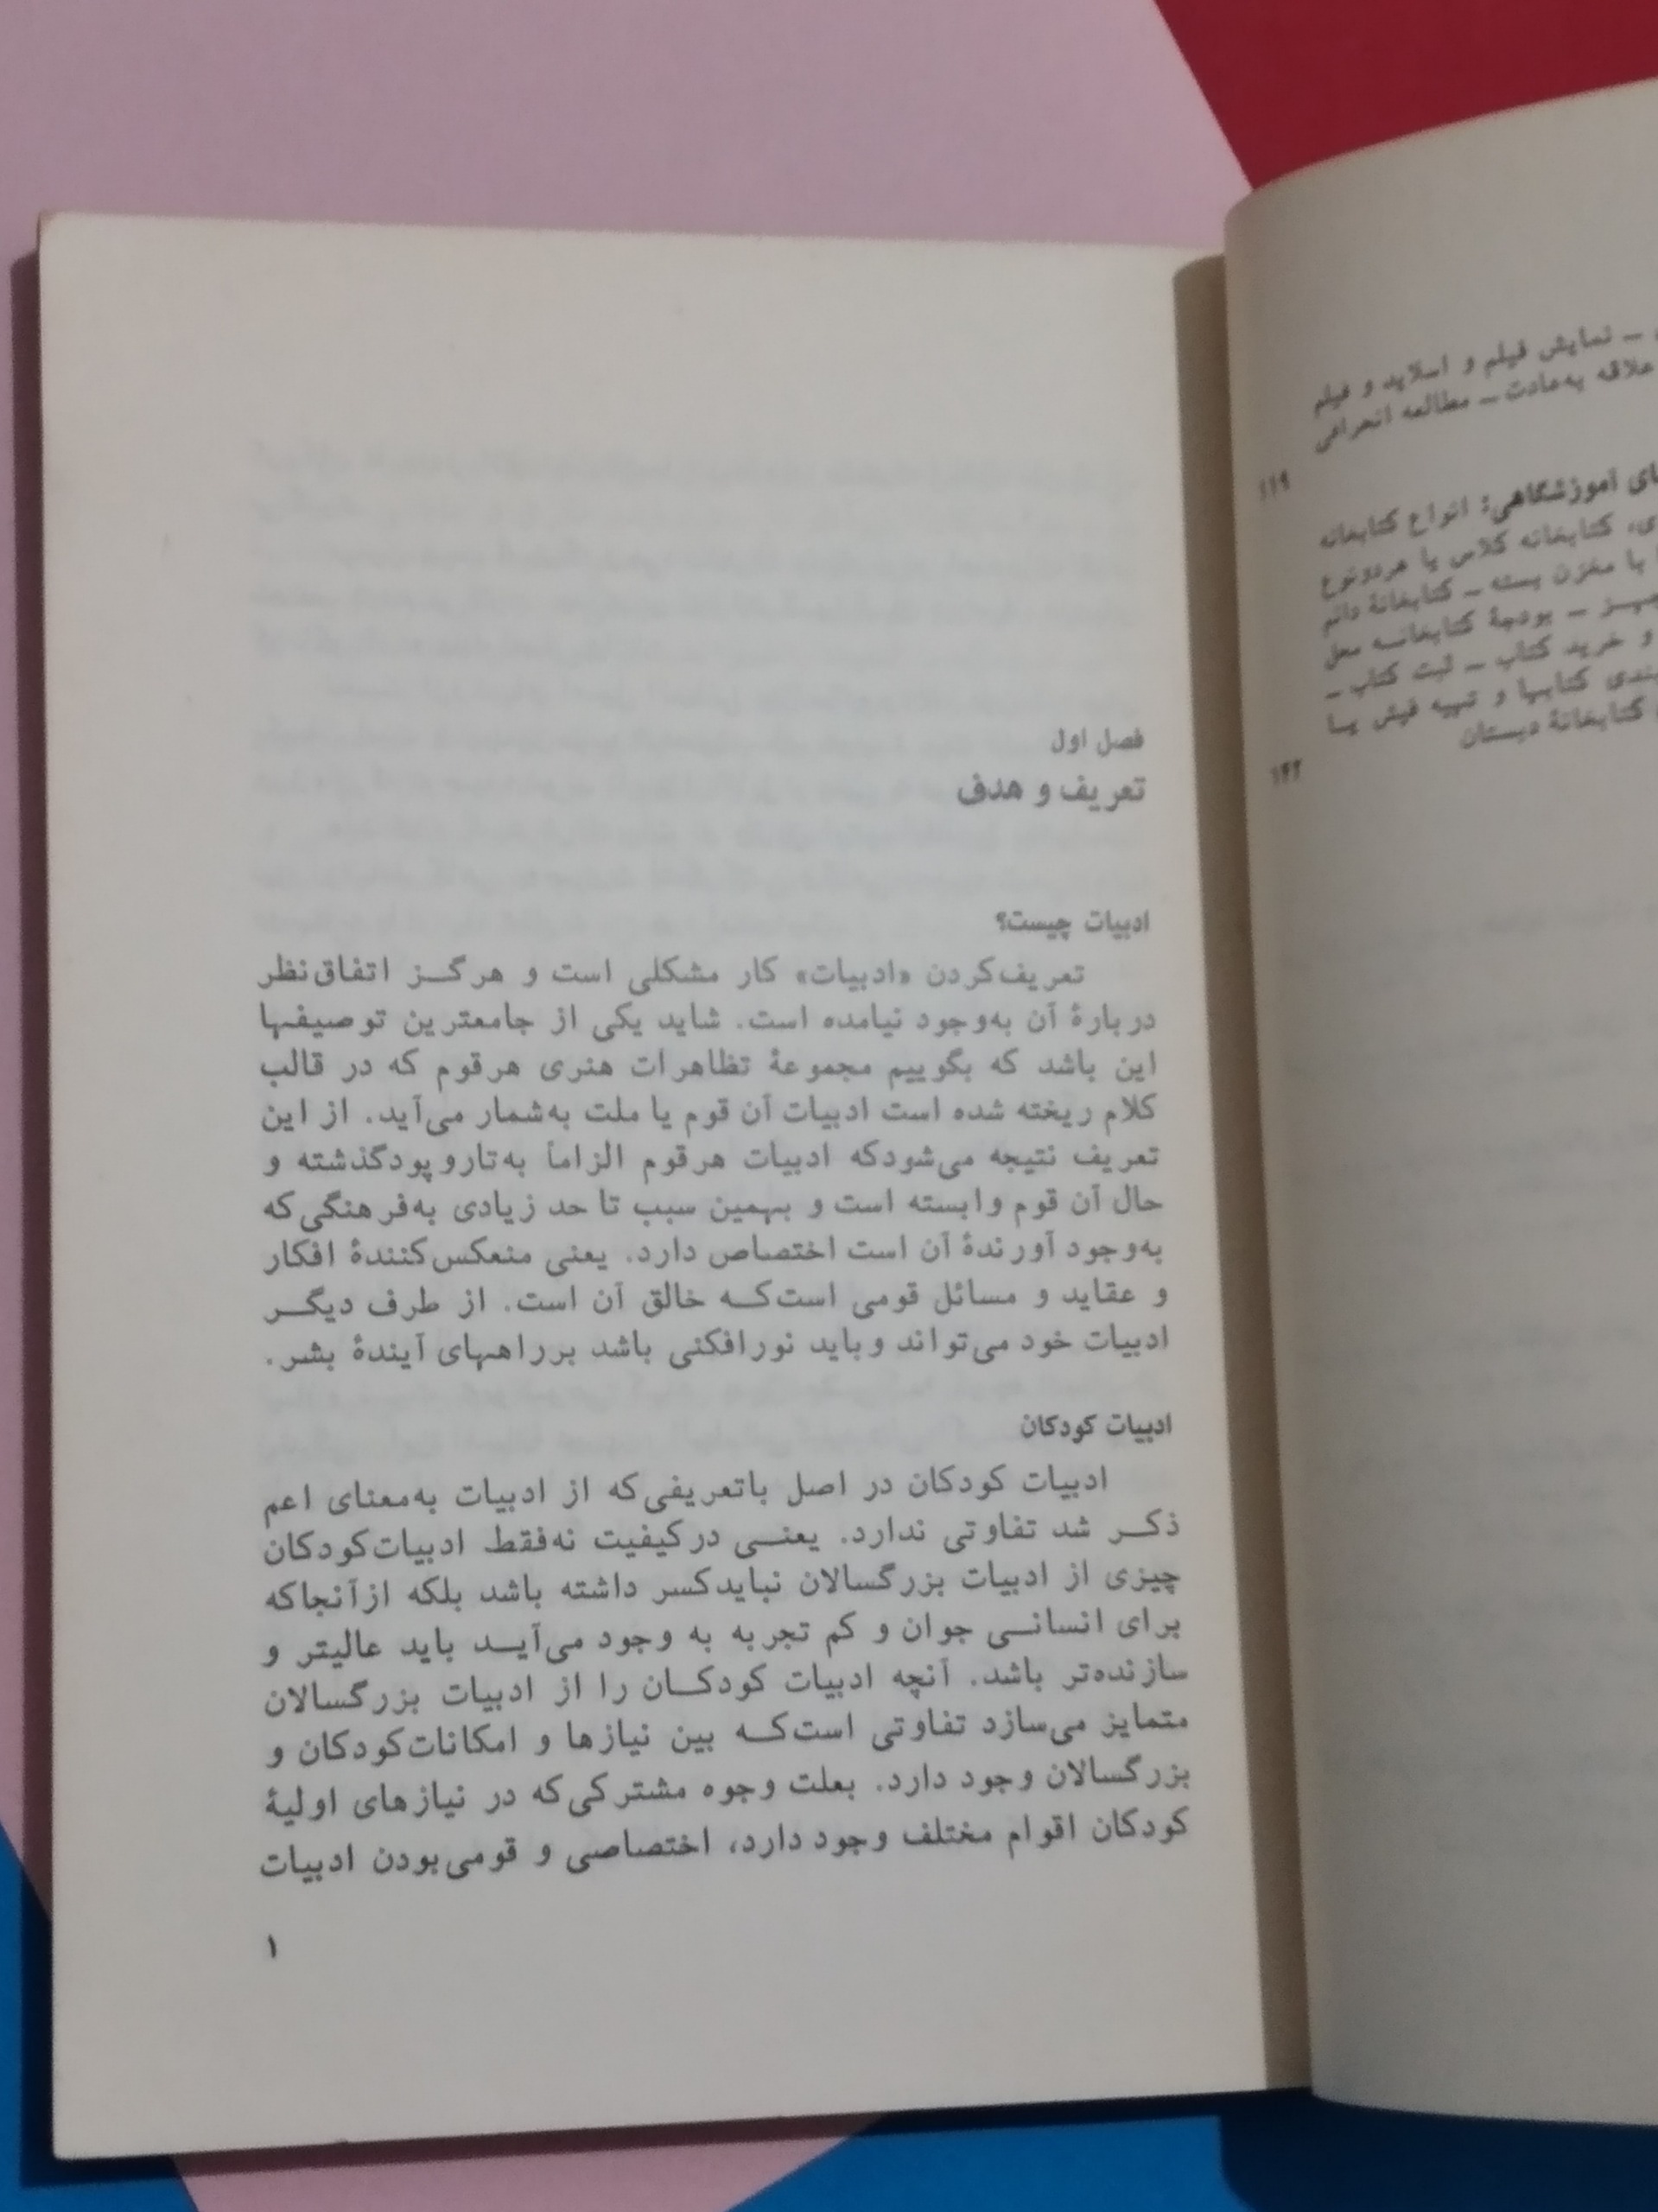 فصل اول
تعریف و هدف
ادبیات چیست؟
تعریف‌کردن «ادبیات» کار مشکلی است و هرگـــز اتفاق‌نظر
دربارهٔ آن به‌وجود نیامده است. شاید یکی از جامعترین توصیفها
این باشد که بگوییم مجموعهٔ تظاهرات هنری هرقوم که در قالب
کلام ریخته شده است ادبیات آن قوم یا ملت به‌شمار می‌آید. از این
تعریف نتیجه می‌شودکه ادبیات هرقوم الزاماً به‌تاروپودگذشته و
حال آن قوم وابسته است و بهمین سبب تا حد زیادی به‌فرهنگی‌که
به‌وجود آورندهٔ آن است اختصاص دارد. یعنی منعکس‌کنندهٔ افکار
و عقاید و مسائل قومی است‌کــه خالق آن است. از طرف دیگــر
ادبیات خود می‌تواند وباید نورافکنی باشد برراههای آیندهٔ بشر.
ادبیات کودکان
ادبیات کودکان در اصل باتعریفی‌که از ادبیات به‌معنای اعم
ذکــر شد تفاوتی ندارد. یعنــی درکیفیت نه‌فقط ادبیات‌کودکان
چیزی از ادبیات بزرگسالان نبایدکسر داشته باشد بلکه ازآنجاکه
برای انسانــی جوان و کم تجربه به وجود می‌آیــد باید عالیتر و
سازنده‌تر باشد. آنچه ادبیات کودکــان را از ادبیات بزرگسالان
متمایز می‌سازد تفاوتی است‌کــه بین نیازها و امکانات‌کودکان و
بزرگسالان وجود دارد. بعلت وجوه مشترکی‌که در نیازهای اولیهٔ
کودکان اقوام مختلف وجود دارد، اختصاصی و قومی‌بودن ادبیات
۱
ـ نمایش فیلم و اسلاید و فیلم
علاقه به‌عادت ـ مطالعه انحرافی
۱۱۹
آموزشگاهی: انواع کتابخانه
کتابخانه کلاس یا هردونوع
با مخزن بسته ـ کتابخانهٔ دائم
ـ بودجهٔ کتابخانــه محل
و خرید کتاب ـ ثبت کتاب ـ
کتابها و تهیه فیش یــا
کتابخانهٔ دبستان
۱۴۲